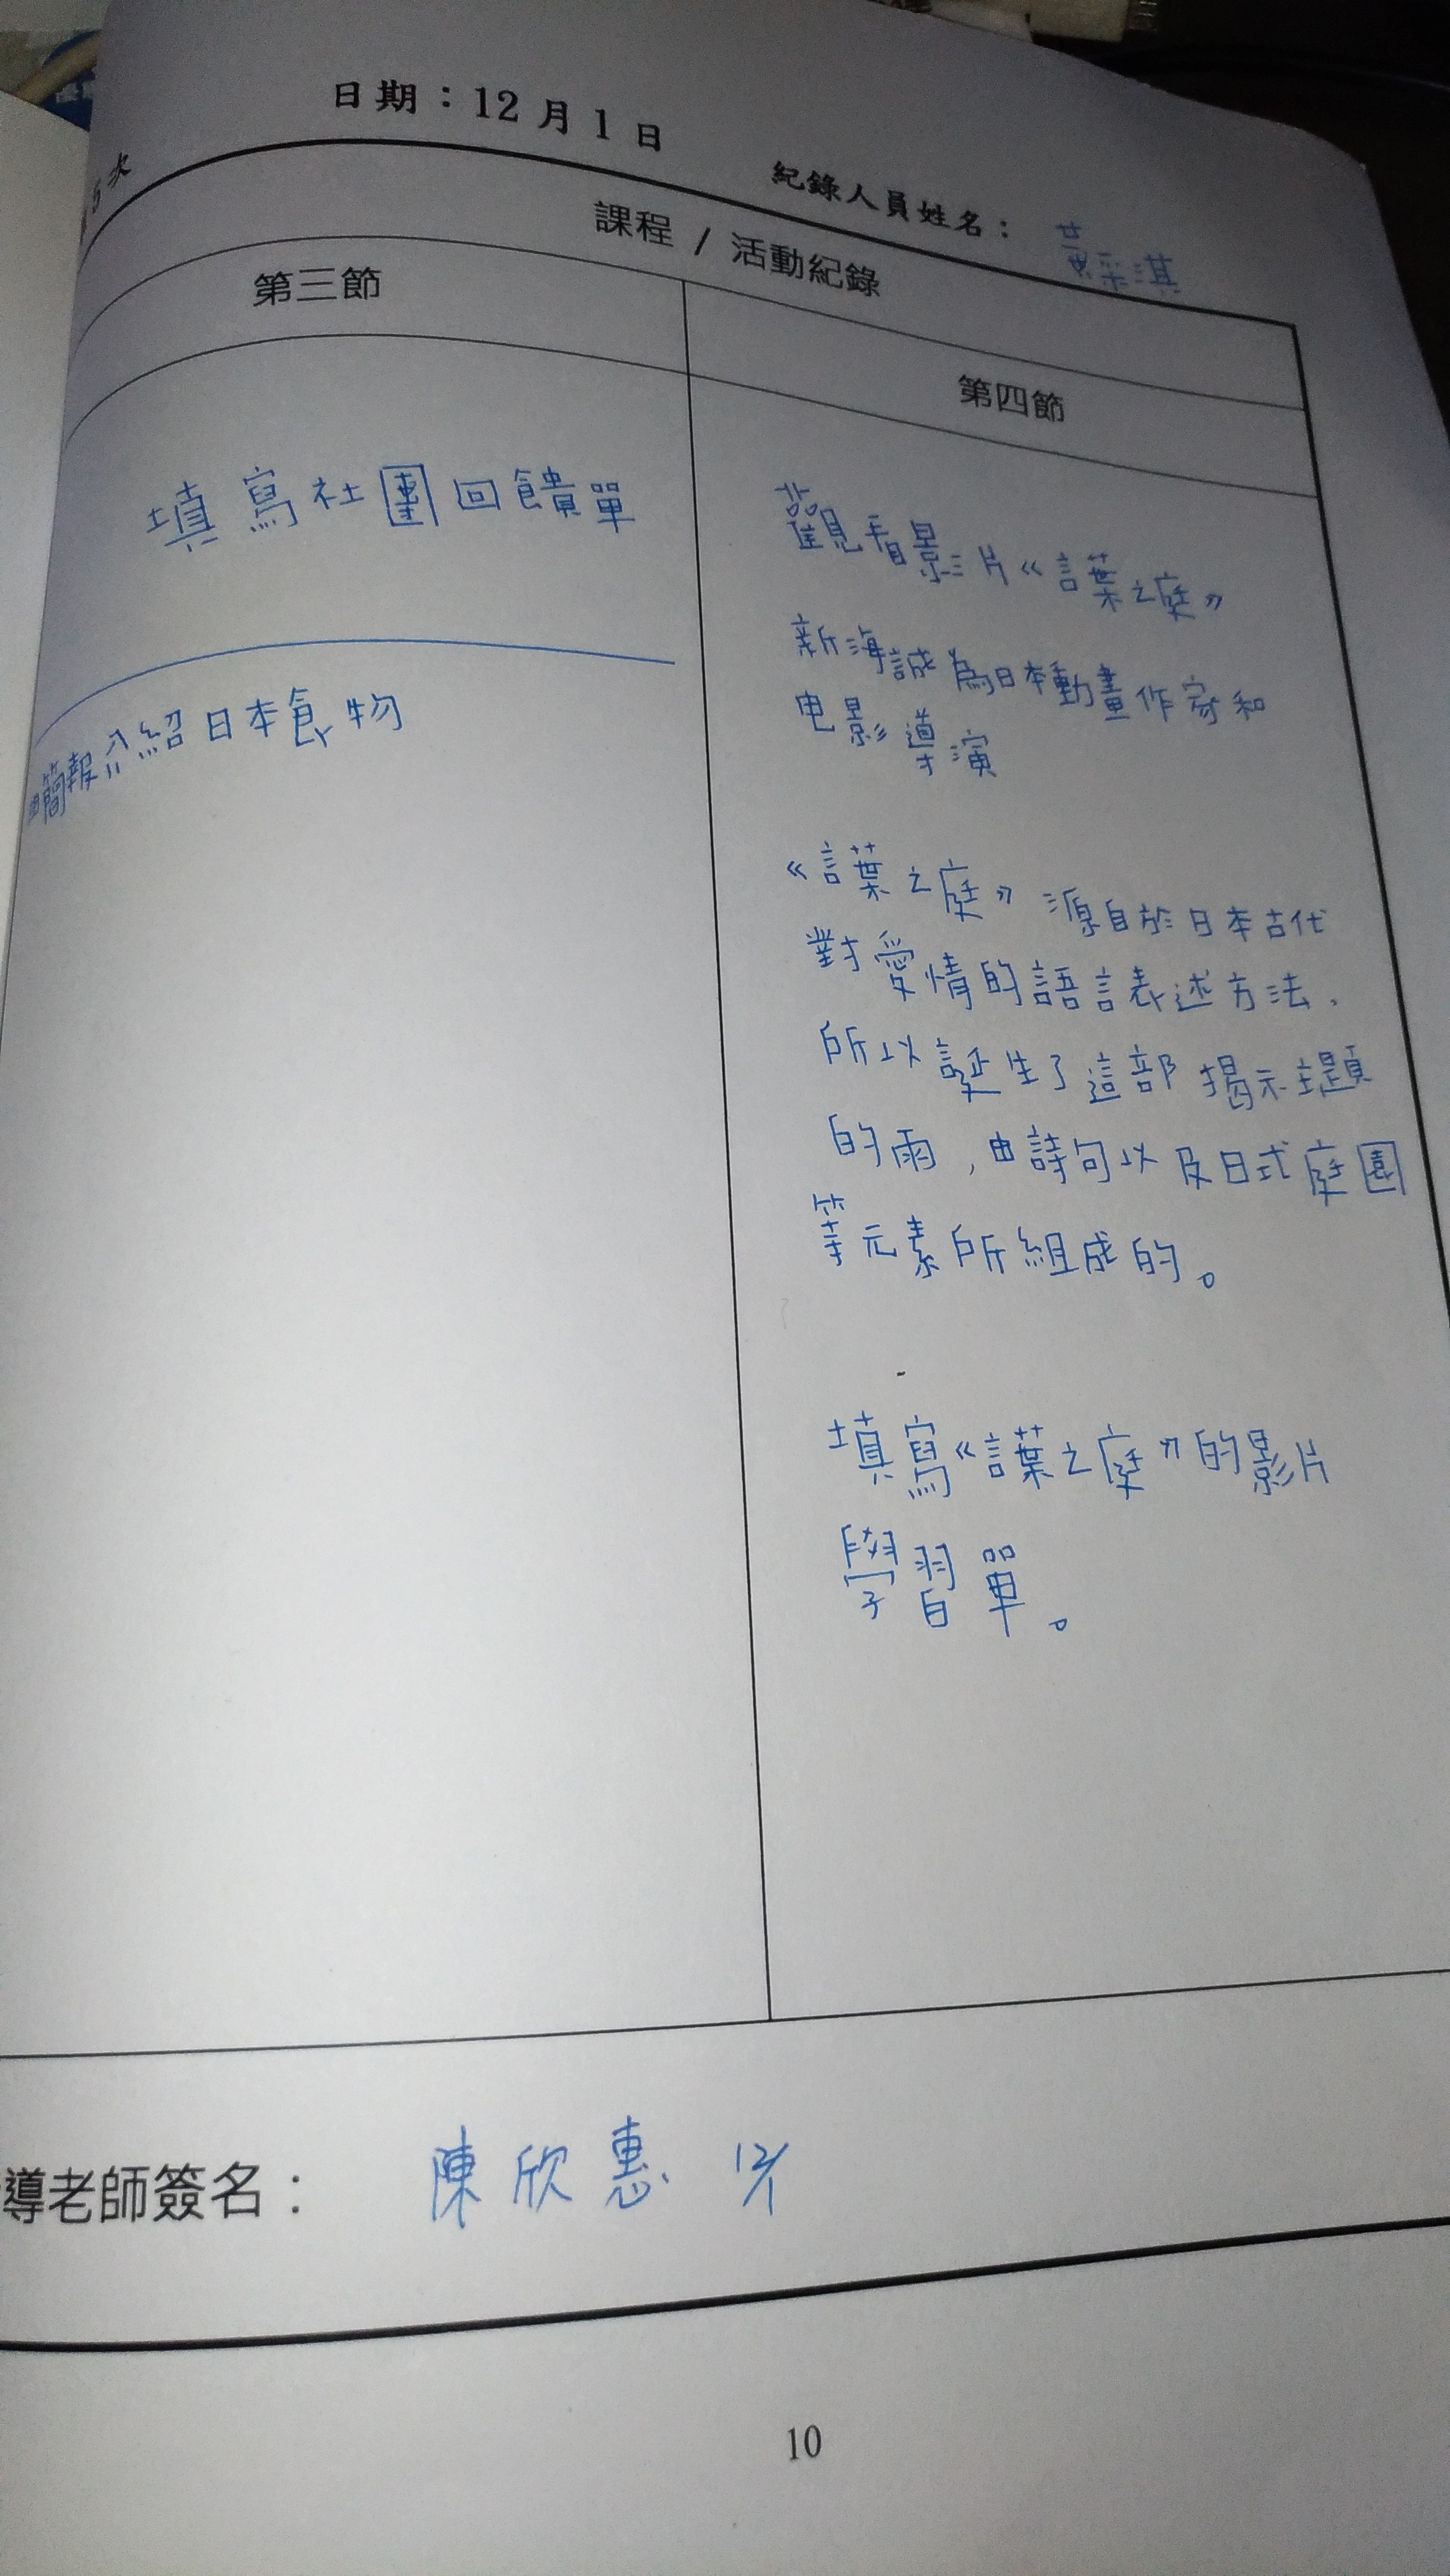 日期：12月1日
5次
紀錄人員姓名：黃采淇
課程 / 活動紀錄
第三節
第四節
填寫社團回饋單
簡報介紹日本食物
觀看影片《言葉之庭》
新海誠為日本動畫作家和
电影導演
《言葉之庭》源自於日本古代
對愛情的語言表述方法，
所以誕生了這部揭示主題
的雨，由詩句以及日式庭園
等元素所組成的。
填寫《言葉之庭》的影片
學習單。
導老師簽名：陳欣惠 12/1
10